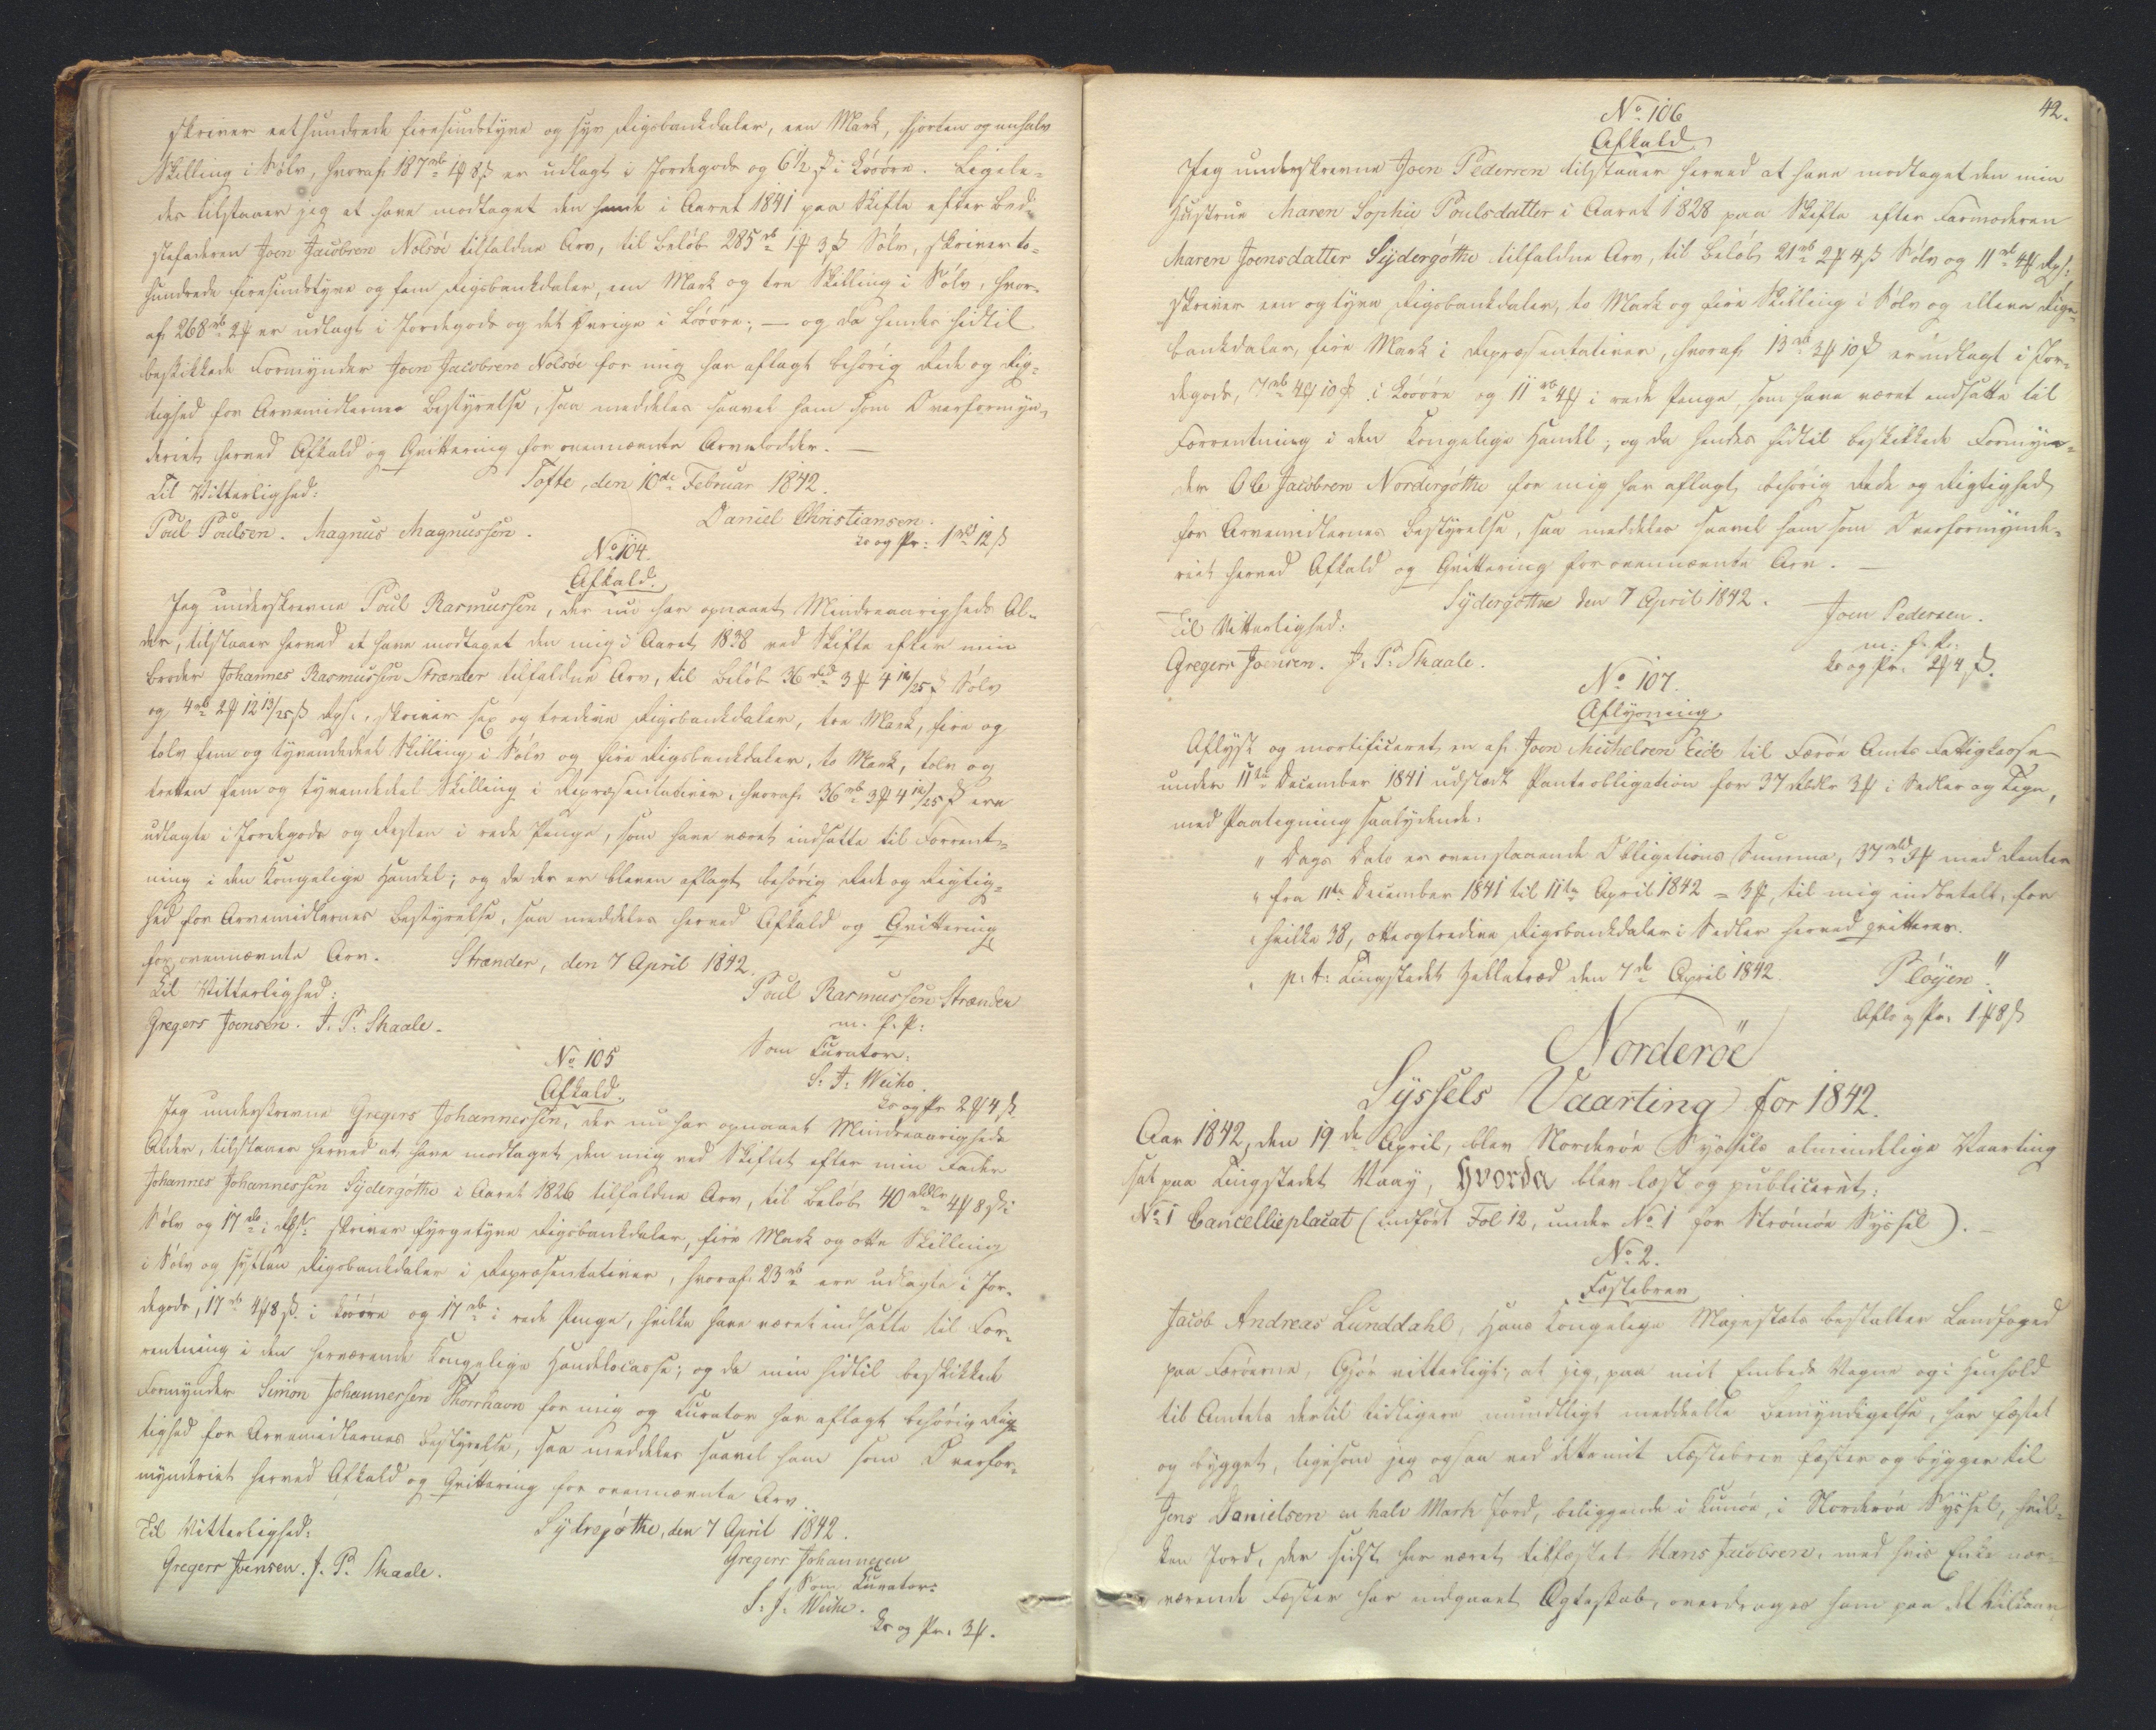 skriver eethundrede firesindstyve og syv Rigsbankdaler, een Mark, fjorten og en halv
Skilling i Sølv, hvoraf 187 rb 1 ℳ 8 ß er udlagt i Jordegods og 6½ ß i Løsøre. Ligele-
des tilstaaer jeg at have modtaget den hende i Aaret 1841 paa Skifte efter Bed-
stefaderen Joen Jacobsen Nolsöe tilfaldne Arv, til Beløb 285 rb 1 ℳ 3 ß Sølv, skriver to-
hundrede firesindstyve og fem Rigsbankdaler, een Mark og tre Skilling i Sølv, hvor-
af 268 rb 2 ℳ er udlagt i Jordegods og det Øvrige i Løsøre; — og da hendes hidtil
beskikkede Formynder Joen Jacobsen Nolsöe for mig har aflagt behörig Rede og Rig-
tighed for Arvemidlernes Bestyrelse, saa meddeles saavel ham som Overformyn-
deriet herved Afkald og Qvittering for ovennævnte Arvelodder. —
Tofte, den 10de Februar 1842.
Til Vitterlighed:
Daniel Christiansen.
Poul Poulsen. Magnus Magnussen.
Ls og Pr: 1 rbd 12 ß
No 104.
Afkald.
Jeg underskrevne Poul Rasmussen, der nu har opnaaet Mindreaarigheds Al-
der, tilstaaer herved at have modtaget den mig i Aaret 1838 ved Skifte efter min
Broder Johannes Rasmussen Strænder tilfaldne Arv, til Beløb 36 rbd 3 ℳ 4 12/25 ß Sølv
og 4 rb 2 ℳ 12 13/25 ß Rps:, skriver sex og tredive Rigsbankdaler, tre Mark, fire og
tolv fem og tyvendedeel Skilling i Sølv og fire Rigsbankdaler, to Mark, tolv og
tretten fem og tyvendedeel Skilling i Repræsentativer, hvoraf 36 rb 3 ℳ 4 12/25 ß ere
udlagte i Jordegods og Resten i rede Penge, som have været indsatte til Forrent-
ning i den Kongelige Handel; og da der er bleven aflagt behörig Rede og Rigtig-
hed for Arvemidlernes Bestyrelse, saa meddeles herved Afkald og Qvittering
for ovennævnte Arv. Strænder, den 7 April 1842.
Til Vitterlighed:
Poul Rasmussen Strænder
Gregers Joensen. J. P. Skaale.
m. f. P:
Som Curator:
S: J: Weihe.
Ls og Pr 2 ℳ 4 ß.
No 105
Afkald.
Jeg underskrevne Gregers Johannessen, der nu har opnaaet Mindreaarigheds
Alder, tilstaaer herved at have modtaget den mig ved Skiftet efter min Fader
Johannes Johannessen Sydergöthe i Aaret 1826 tilfaldne Arv, til Beløb 40 rbdlr 4 ℳ 8 ß i
Sølv og 17 rb i Rps: skriver fyrgetyve Rigsbankdaler, fire Mark og otte Skilling
i Sølv og sytten Rigsbankdaler i Repræsentativer, hvoraf 23 rb ere udlagte i Jor-
degods, 17 rb 4 ℳ 8 ß. i Løsøre og 17 rb i rede Penge, hvilke have været indsatte til For-
rentning i den herværende Kongelige Handelscasse; og da min hidtil beskikkede
Formynder Simon Johannessen Thorshavn for mig og Curator har aflagt behörig Rig-
tighed for Arvemidlernes Bestyrelse, saa meddeles saavel ham som Overfor-
mynderiet herved Afkald og Qvittering for ovennævnte Arv.
Sydregöthe, den 7 April 1842.
Til Vitterlighed:
Gregers Johannesen
Gregers Joensen. J. P. Skaale.
Som Curator:
S: J: Weihe.
Ls og Pr: 3 ℳ.
42.
No 106
Afkald
Jeg underskrevne Joen Pedersen tilstaaer herved at have modtaget den min
Hustrue Maren Sophie Poulsdatter i Aaret 1828 paa Skifte efter Farmoderen
Maren Joensdatter Sydergöthe tilfaldne Arv, til Beløb 21 rb 2 ℳ 4 ß Sølv og 11 rb 4 ℳ Rps:
skriver een og tyve Rigsbankdaler, to Mark og fire Skilling i Sølv og elleve Rigs-
bankdaler, fire Mark i Repræsentativer, hvoraf 13 rb 3 ℳ 10 ß er udlagt i Jor-
degods, 7 rb 4 ℳ 10 ß i Løsøre og 11 rb 4 ℳ i rede Penge, som have været indsatte til
Forrentning i den Kongelige Handel; og da hendes hidtil beskikkede Formyn-
der Ole Jacobsen Nordergöthe for mig har aflagt behörig Rede og Rigtighed
for Arvemidlernes Bestyrelse, saa meddeles saavel ham som Overformynde-
riet herved Afkald og Qvittering for ovennævnte Arv. —
Sydergöthe den 7 April 1842.
Til Vitterlighed:
Joen Pedersen.
m. f. P:
Gregers Joensen. J. P. Skaale.
Ls og Pr. 2 ℳ 4 ß.
No 107.
Aflysning
Aflyst og mortificeret en af Joen Michelsen Eide til Færöe Amts Fattigkasse
under 11te December 1841 udstedt Panteobligation for 37 Rbdlr 3 ℳ i Sedler og Tegn,
med Paategning saalydende:
" Dags Dato er ovenstaaende Obligations Summa, 37 rbd 3 ℳ med Renter
" fra 11te December 1841 til 11te April 1842 = 3 ℳ, til mig indbetalt, for
" hvilke 38, otteogtredive Rigsbankdaler i Sedler herved qvitteres.
" p. t. Tingstedet Zelletræd den 7de April 1842.
Pløyen "
Afls og Pr. 1 ℳ 8 ß
Norderöe
Syssels Vaarting for 1842.
Aar 1842, den 19de April, blev Norderöe Syssels almindelige Vaarting
sat paa Tingstedet Vaay, hvorda blev læst og publiceret:
No 1 Cancellieplacat (indført Fol 12, under No 1 for Strömöe Syssel). —
No 2.
Fæstebrev
Jacob Andreas Lunddahl, Hans Kongelige Majestæts bestalter Landfoged
paa Færöerne, Gjör vitterligt; at jeg, paa mit Embeds Vegne og i Henhold
til Amtets dertil tidligere mundtligt meddeelte Bemyndigelse, har fæstet
og bygget, ligesom jeg ogsaa ved dette mit Fæstebrev fæster og bygger til
Jens Danielsen en halv Mark Jord, beliggende i Kunöe, i Norderöe Syssel, hvil-
ken Jord, der sidst har været tilfæstet Hans Jacobsen, med hvis Enke nær-
værende Fæster har indgaaet Ægteskab, overdrages ham paa det Vilkaar,